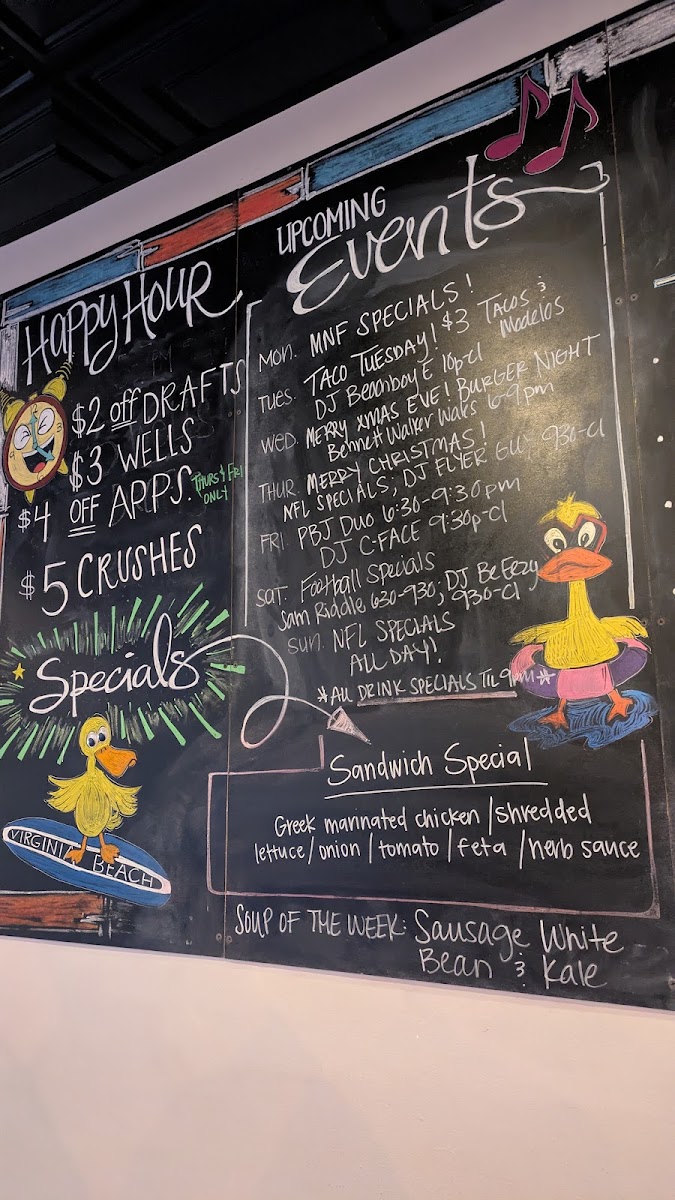 Happy Hour
$2 off DRAFTS
$3 WELLS
$4 OFF APPS. THURS & FRI ONLY
$5 CRUSHES
Specials
VIRGINIA BEACH
UPCOMING
Events
MON. MNF SPECIALS!
TUES. TACO TUESDAY! $3 TACOS & Modelos
DJ BeachboyE 10p-cl
WED. MERRY XMAS EVE! BURGER NIGHT
Bennett Walker Waks 6-9pm
THUR. MERRY CHRISTMAS!
NFL SPECIALS, DJ FLYER GUY 930-cl
FRI. PBJ Duo 6:30-9:30pm
DJ C-FACE 9:30p-cl
SAT. Football Specials
Sam Riddle 630-930, DJ BeEezy 930-cl
SUN. NFL SPECIALS
ALL DAY!
*ALL DRINK SPECIALS TIL 9pm*
Sandwich Special
Greek marinated chicken /shredded
lettuce/onion/tomato/feta/herb sauce
SOUP OF THE WEEK: Sausage White
Bean & Kale